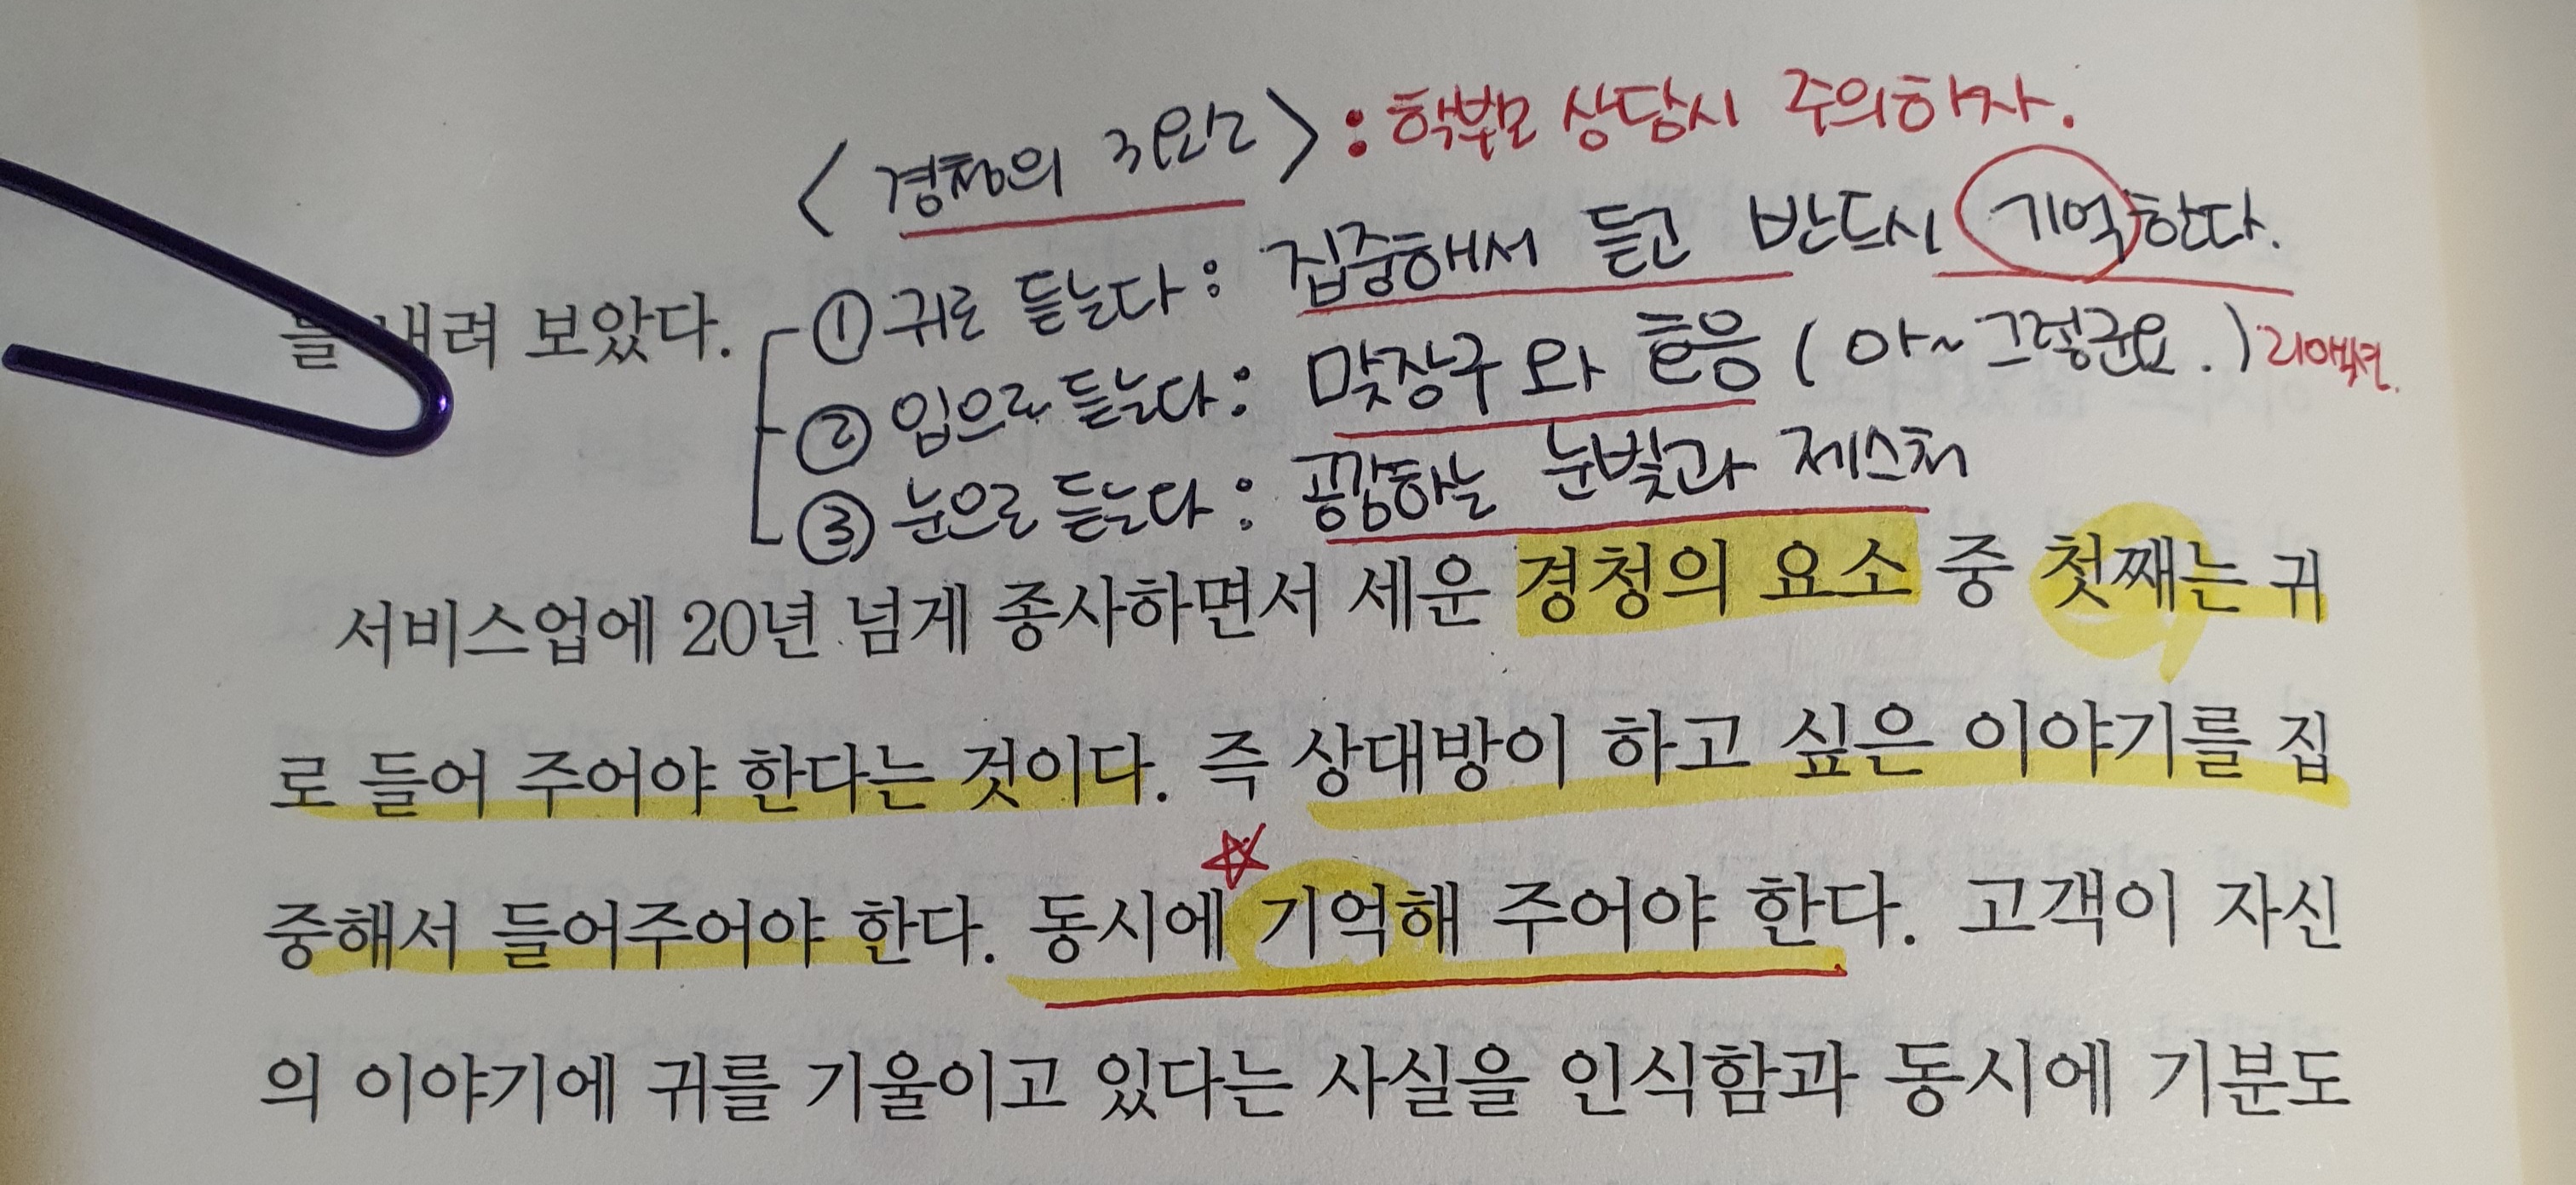 <경청의 3요소> : 학부모 상담시 주의하자.
① 귀로 듣는다 : 집중해서 듣고 반드시 기억한다.
를 내려 보았다.
② 입으로 듣는다 : 맞장구와 호응 (아~그렇군요.) 리액션.
③ 눈으로 듣는다 : 공감하는 눈빛과 제스처
서비스업에 20년 넘게 종사하면서 세운 경청의 요소 중 첫째는 귀
로 들어 주어야 한다는 것이다. 즉 상대방이 하고 싶은 이야기를 집
중해서 들어주어야 한다. 동시에 기억해 주어야 한다. 고객이 자신
의 이야기에 귀를 기울이고 있다는 사실을 인식함과 동시에 기분도